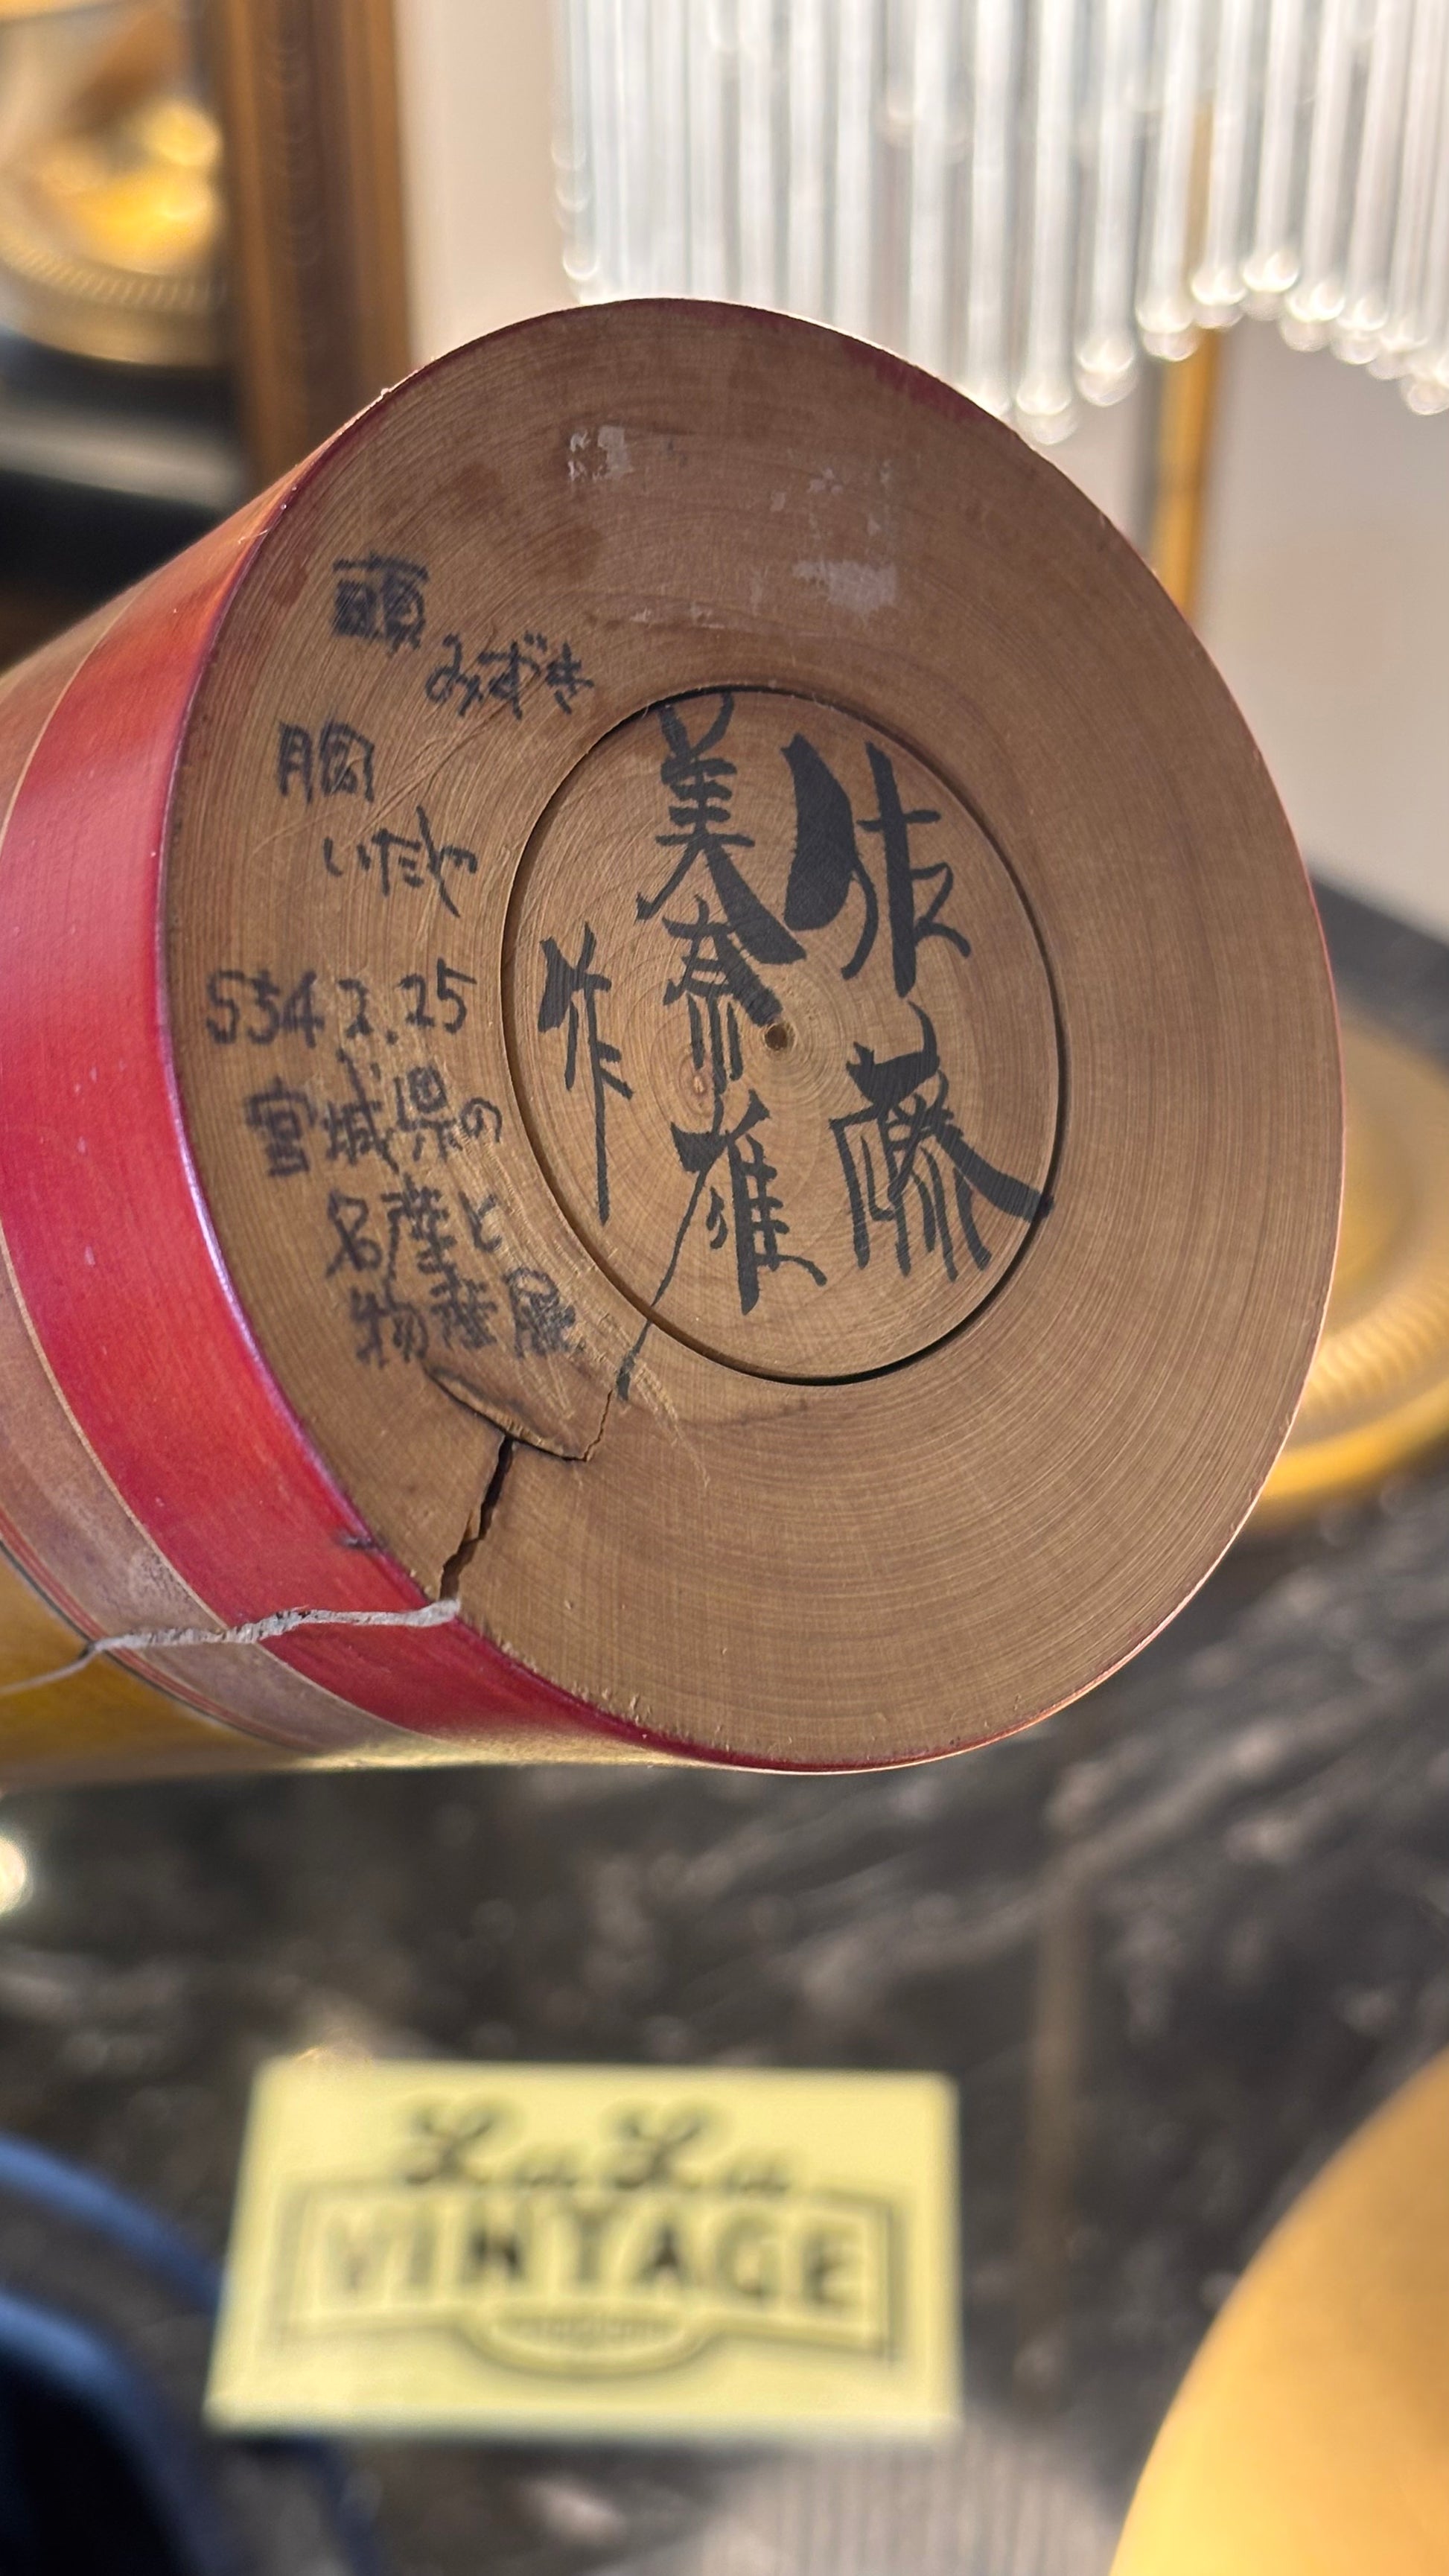 佐藤
美奈雄
作
頭
みずき
胴
いたや
S54.2.25
宮城県の
名産と
物産展
LuLu
VINTAGE